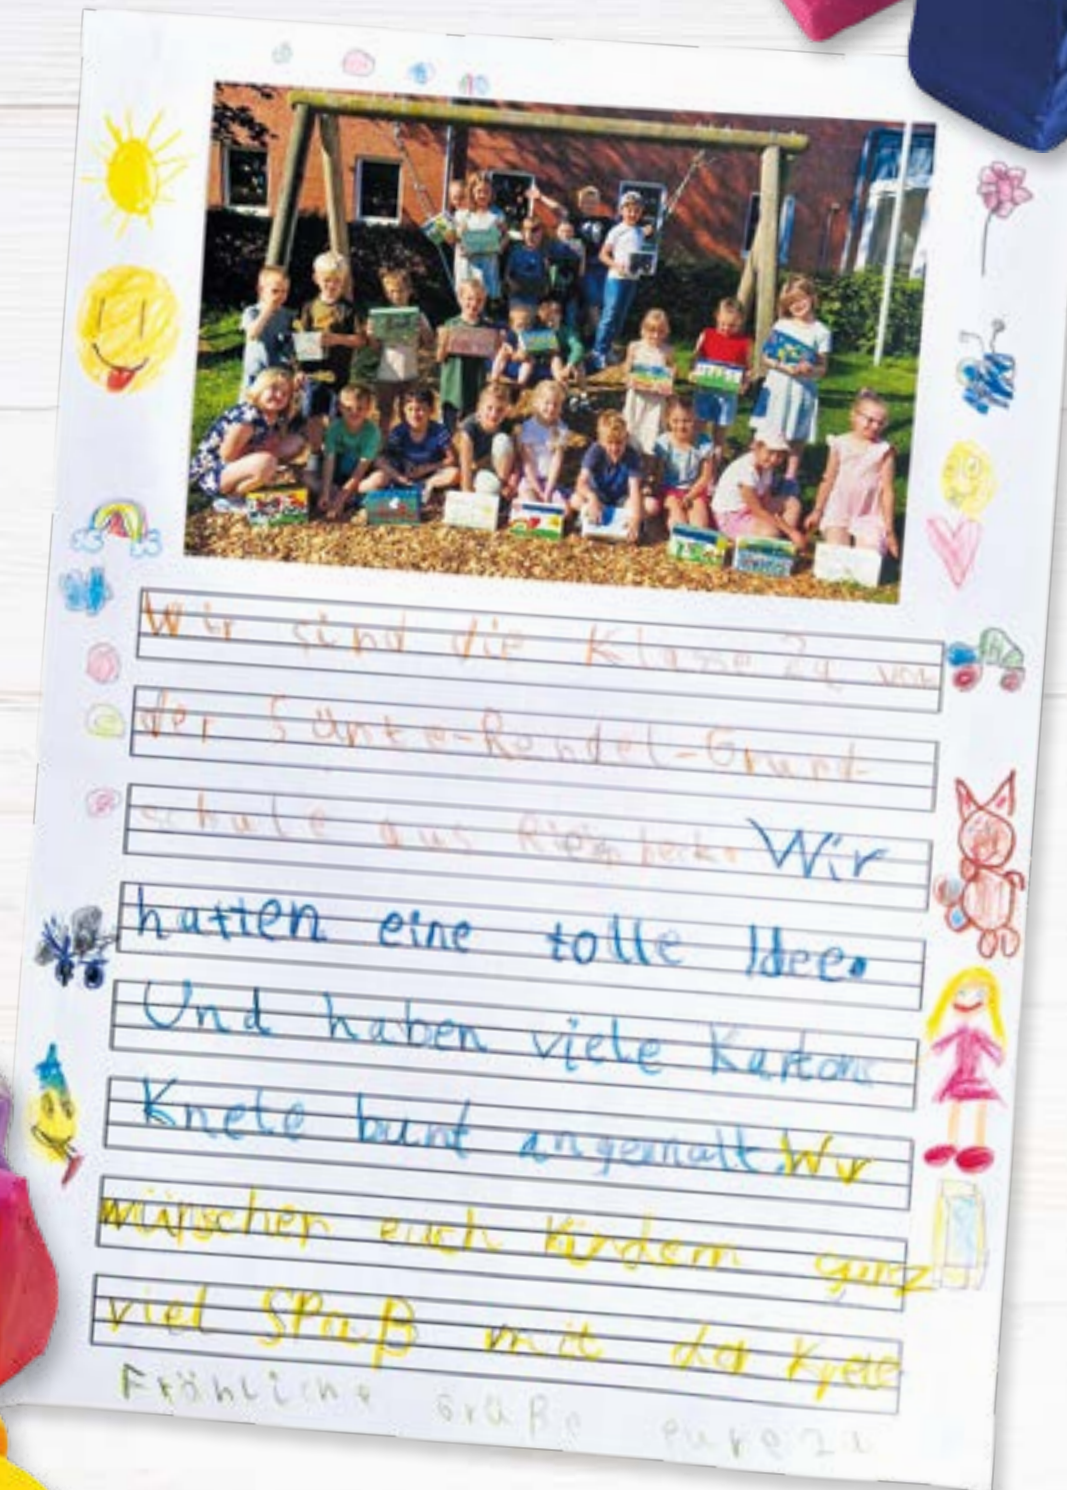 Wir sind die Klasse 2a von
der Sünte-Rendel-Grund-
schule aus Riesenbeck. Wir
hatten eine tolle Idee.
Und haben viele Kartons
Knete bunt angemalt. Wir
wünschen euch Kindern ganz
viel SPaß mit der Knete
Fröhliche Grüße eure 2a